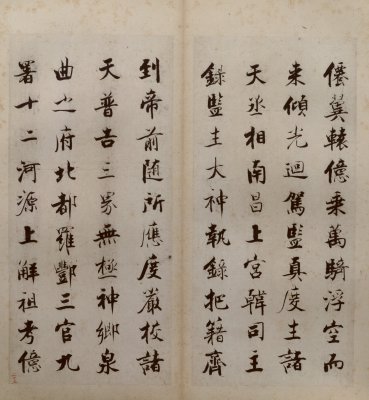 僊翼轅億乘萬騎浮空而
來傾光迴駕監真度生諸
天丞相南昌上宮韓司主
錄監生大神執錄把籍齊
到帝前随所應度嚴校諸
天普告三界無極神鄉泉
曲之府北都羅酆三官九
署十二河源上解祖考億